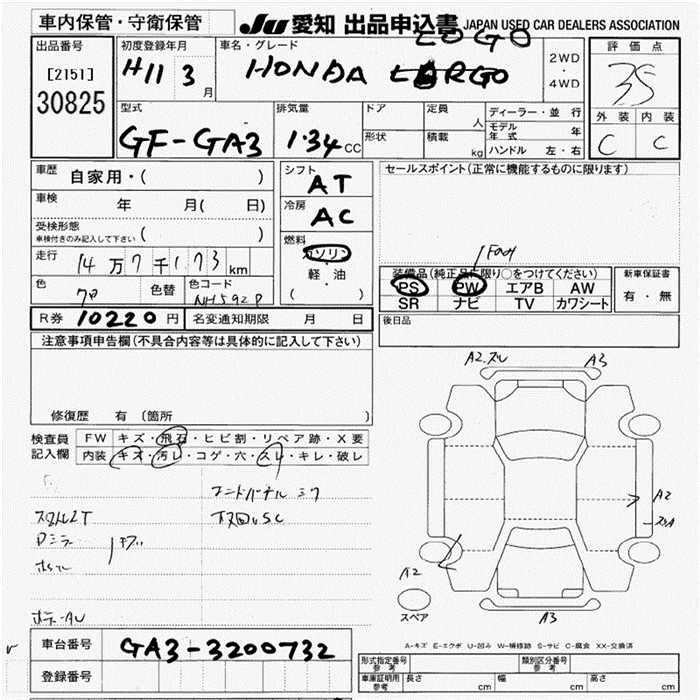 車内保管・守衛保管
JU 愛知 出品申込書 JAPAN USED CAR DEALERS ASSOCIATION
出品番号
[2151]
30825
初度登録年月
H11 3 月
車名・グレード
LOGO
HONDA
2WD
・
4WD
評価点
35
外装 内装
C C
型式
GF-GA3
排気量
1.34 CC
ドア
形状
定員 人
積載 kg
ディーラー・並行
モデル年式 年
ハンドル 左・右
車歴
自家用・( )
車検 年 月( 日)
受検形態
車検付きのみ記入して下さい ( )
走行
14万7千173 km
色
色替
色コード
NH592P
シフト
AT
冷房
AC
燃料
ガソリン
・
軽・油
( )
セールスポイント(正常に機能するものに限ります)
装備品(純正品に限り○をつけてください)
PS PW エアB AW
SR ナビ TV カワシート
新車保証書
有・無
R券 10220 円
名変通知期限 月 日
後日品
注意事項申告欄(不具合内容等は具体的に記入して下さい)
修復歴 有 (箇所 )
検査員
記入欄
FW キズ・飛石・ヒビ割・リペア跡・X要
内装 キズ・汚レ・コゲ・穴・スレ・キレ・破レ
A2 A3
A2
A2
スペア
A3
A-キズ E-エクボ U-凹み W-補修跡 S-サビ C-腐食 XX-交換済
車台番号
GA3-3200732
登録番号
形式指定番号
参考
類別区分番号
参考
車庫証明用
参考
長さ cm
幅 cm
高さ cm